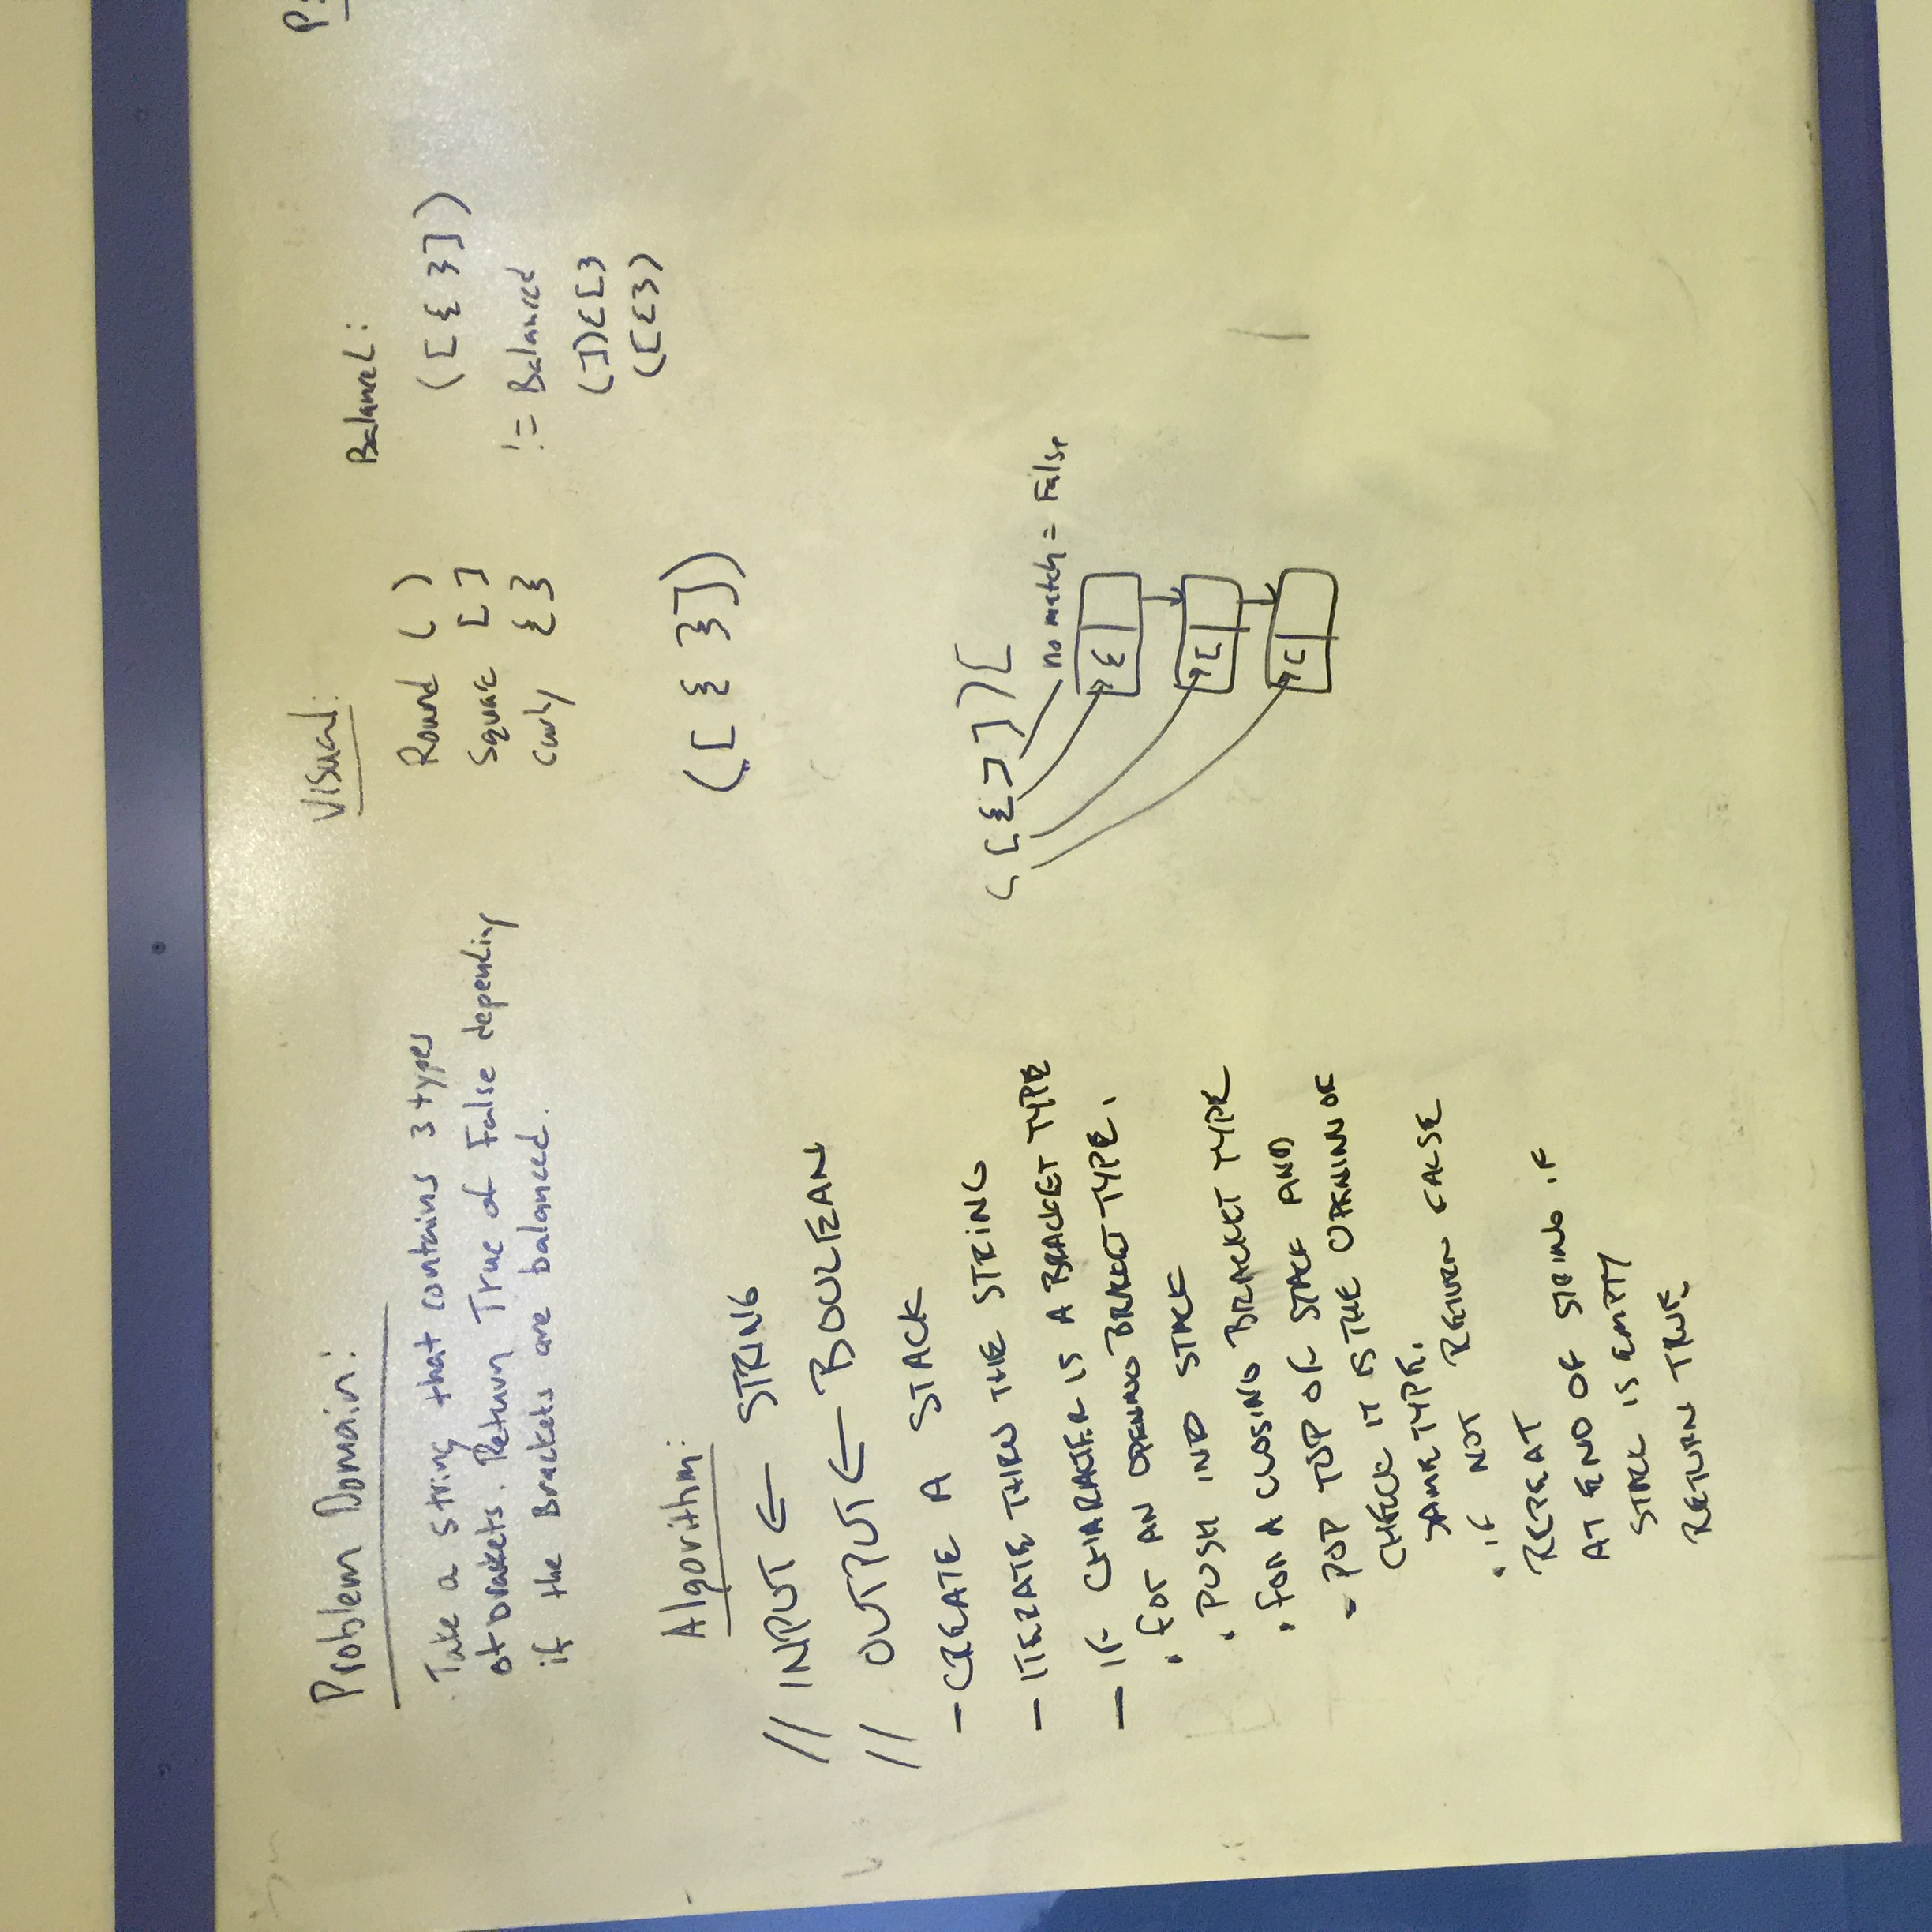 Problem Domain:
Take a string that contains 3 types
of brackets. Return True of False depending
if the Brackets are balanced.
Algorithm:
// INPUT ← STRING
// OUTPUT ← BOOLEAN
- CREATE A STACK
- ITERATE THRU THE STRING
- IF CHARACTER IS A BRACKET TYPE
. FOR AN OPENING BRACKET TYPE.
. PUSH INTO STACK
. FOR A CLOSING BRACKET TYPE
- POP TOP OF STACK AND
CHECK IT IS THE OPENING OF
SAME TYPE.
. IF NOT RETURN FALSE
REPEAT
AT END OF STRING IF
STACK IS EMPTY
RETURN TRUE
Visual:
Round ( )
Square [ ]
Curly { }
Balanced:
([{ }])
!= Balanced
(]){[}
([{})
([{ }])
([{]])[
no match = False
{
[
(